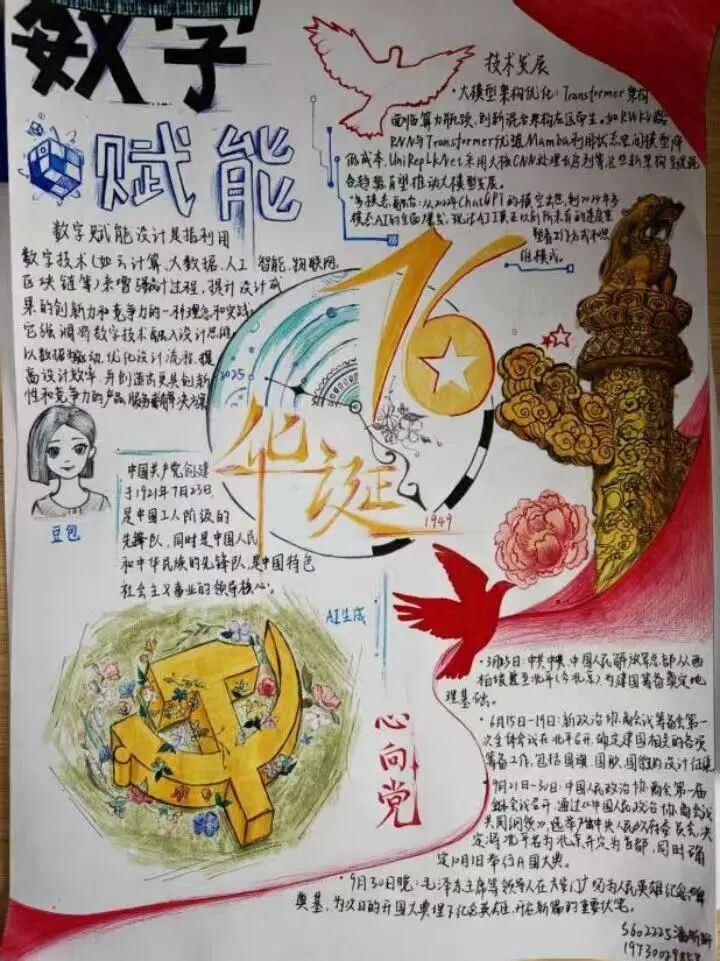 数字
赋能
技术发展
·大模型架构优化：Transformer架构
RNN与Transformer优盟,Mamba利用状态空间模型降
低成本,UniRepLkNet采用大核CNN处理长序列等,这些新架构
有望推动大模型发展。
模态AI的全面爆发
维模式。
数字赋能设计是指利用
数字技术(如云计算、大数据、人工智能、物联网、
区块链等)来增强设计过程,提升设计成
果的创新力和竞争力的一种理念和实践
它强调将数字技术融入设计思维
以数据驱动,优化设计流程,提
高设计效率,并创造出更具创新
性和竞争力的产品、服务解决方案
76
2025
华诞
1949
豆包
中国共产党创建
于1921年7月23日,
是中国工人阶级的
先锋队,同时是中国人民
和中华民族的先锋队,是中国特色
社会主义事业的领导核心。
AI生成
心向党
·3月25日:中共中央、中国人民解放军总部从西
柏坡 北平(今北京),为建国筹备奠定地
理基础。
·6月15日-19日:新政治协商会议筹备会第一
次全体会议在北平召开,确定建国相关的各项
筹备工作,包括国旗、国歌、国徽的设计征集
·9月21日-30日:中国人民政治协商会第一届
全体会议召开,通过《中国人民政治协商会议
共同纲领》,选举产生中央人民政府委员会,决
定将北平名为北京并定为首都,同时确
定10月1日举行开国大典。
·9月30日晚:毛泽东主席等领导人在天安门广场为人民英雄纪念碑
奠基,为次日的开国大典埋下纪念英雄、开启新篇的重要伏笔。
S602225